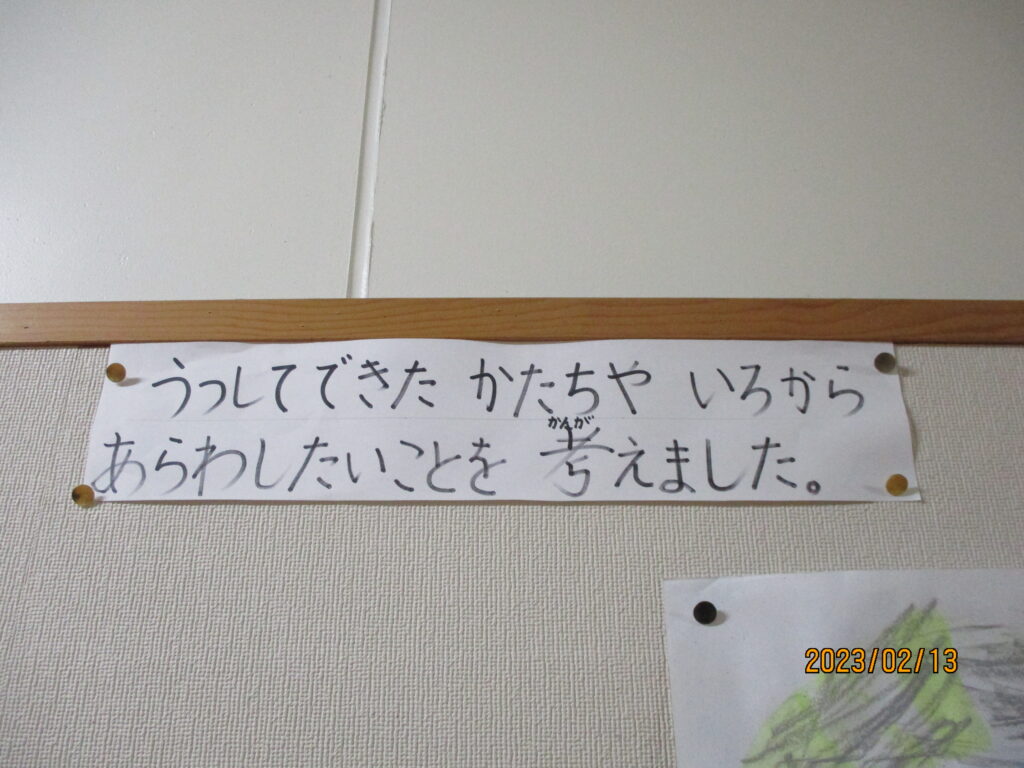 うつしてできた かたちや いろから
かんが
あらわしたいことを 考えました。
2023/02/13